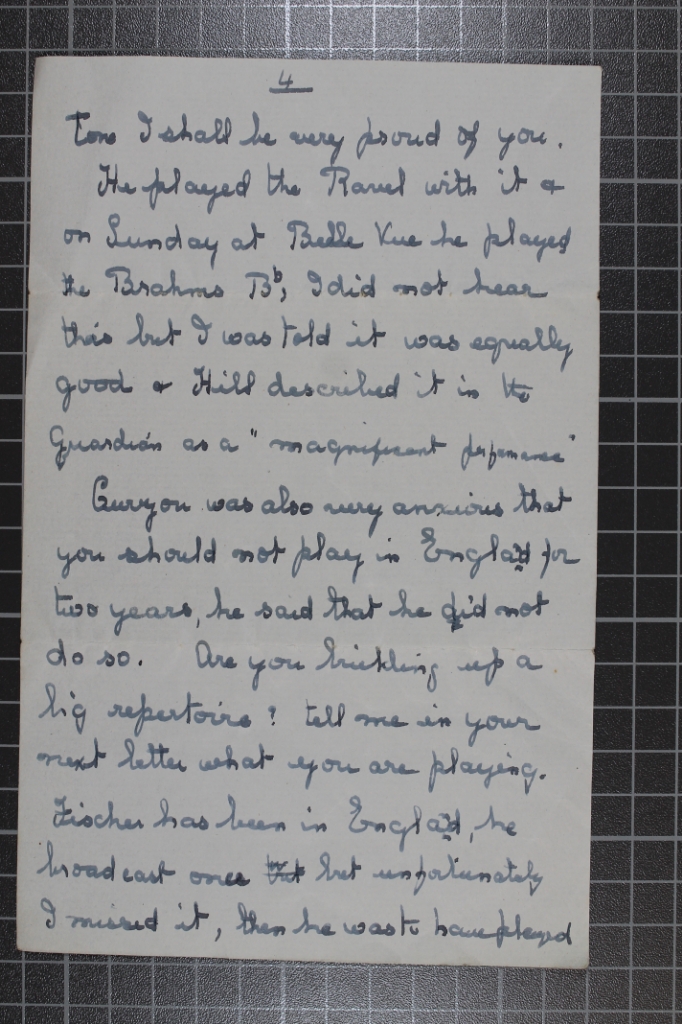 4
Tom I shall be very proud of you.
He played the Ravel with it &
on Sunday at Belle Vue he played
the Brahms Bb, I did not hear
this but I was told it was equally
good & Hill described it in the
Guardian as a "magnificent performance"
Curzon was also very anxious that
you should not play in England for
two years, he said that he did not
do so. Are you brickling up a
big repertoire? tell me in your
next letter what you are playing.
Fischer has been in England, he
broadcast once but unfortunately
I missed it, then he was to have played